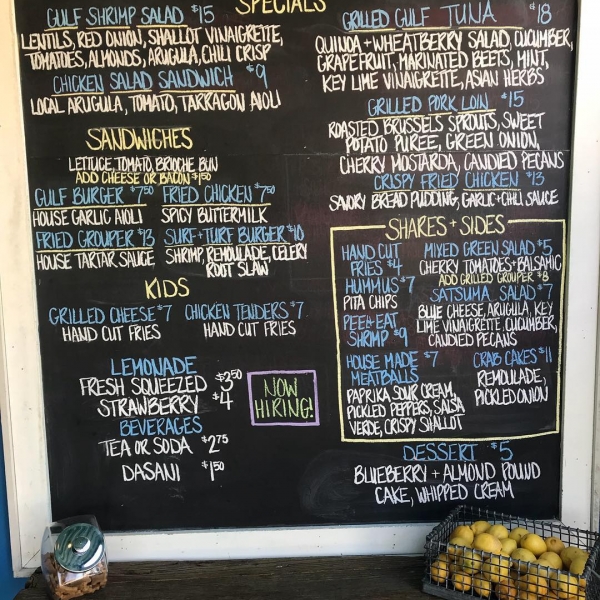 SPECIALS
GULF SHRIMP SALAD $15
LENTILS, RED ONION, SHALLOT VINAIGRETTE,
TOMATOES, ALMONDS, ARUGULA, CHILI CRISP
CHICKEN SALAD SANDWICH $9
LOCAL ARUGULA, TOMATO, TARRAGON AIOLI
GRILLED GULF TUNA $18
QUINOA + WHEATBERRY SALAD, CUCUMBER,
GRAPEFRUIT, MARINATED BEETS, MINT,
KEY LIME VINAIGRETTE, ASIAN HERBS
GRILLED PORK LOIN $15
ROASTED BRUSSELS SPROUTS, SWEET
POTATO PUREE, GREEN ONION,
CHERRY MOSTARDA, CANDIED PECANS
CRISPY FRIED CHICKEN $13
SAVORY BREAD PUDDING, GARLIC + CHILI SAUCE
SANDWICHES
LETTUCE, TOMATO, BRIOCHE BUN
ADD CHEESE OR BACON $1.50
GULF BURGER $7.50
HOUSE GARLIC AIOLI
FRIED CHICKEN $7.50
SPICY BUTTERMILK
FRIED GROUPER $13
HOUSE TARTAR SAUCE
SURF + TURF BURGER $10
SHRIMP, REMOULADE, CELERY
ROOT SLAW
KIDS
GRILLED CHEESE $7
HAND CUT FRIES
CHICKEN TENDERS $7
HAND CUT FRIES
LEMONADE
FRESH SQUEEZED $3.50
STRAWBERRY $4
BEVERAGES
TEA OR SODA $2.75
DASANI $1.50
NOW
HIRING!
SHARES + SIDES
HAND CUT
FRIES $4
HUMMUS $7
PITA CHIPS
PEEL + EAT
SHRIMP $9
HOUSE MADE $7
MEATBALLS
PAPRIKA SOUR CREAM,
PICKLED PEPPERS, SALSA
VERDE, CRISPY SHALLOT
MIXED GREEN SALAD $5
CHERRY TOMATOES + BALSAMIC
ADD GRILLED GROUPER $8
SATSUMA SALAD $7
BLUE CHEESE, ARUGULA, KEY
LIME VINAIGRETTE, CUCUMBER,
CANDIED PECANS
CRAB CAKES $11
REMOULADE,
PICKLED ONION
DESSERT $5
BLUEBERRY + ALMOND POUND
CAKE, WHIPPED CREAM